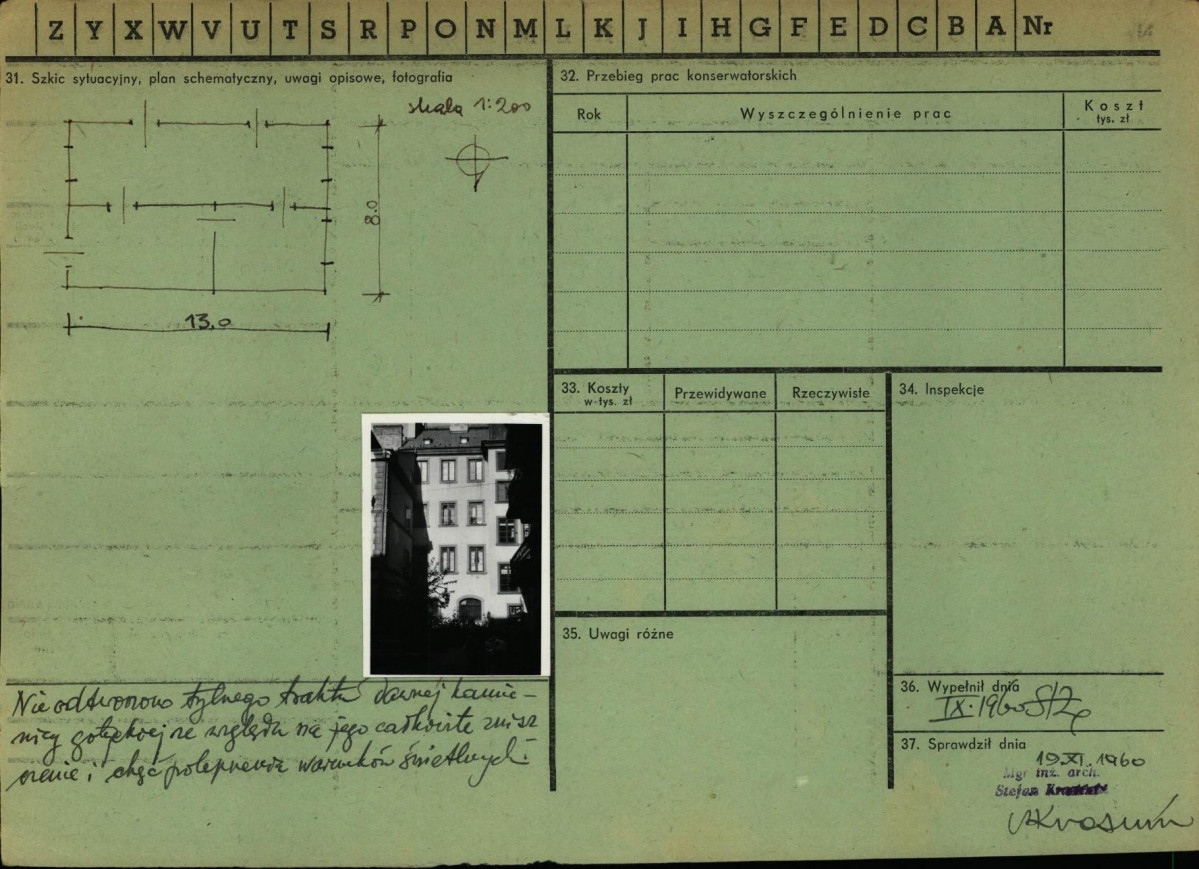 Z Y X W V U T S R P O N M L K J I H G F E D C B A Nr
31. Szkic sytuacyjny, plan schematyczny, uwagi opisowe, fotografia
skala 1:200
8.0
13,0
Nie odtworzono tylnego traktu dawnej kamie-
nicy gotyckiej ze względu na jego całkowite znisz
czenie i chęć polepszenia warunków świetlnych.
32. Przebieg prac konserwatorskich
Rok Wyszczególnienie prac Koszt
tys. zł
33. Koszty Przewidywane Rzeczywiste
w tys. zł
34. Inspekcje
35. Uwagi różne
36. Wypełnił dnia
IX.1960
37. Sprawdził dnia
19.XI.1960
Mgr inż. arch.
Stefan